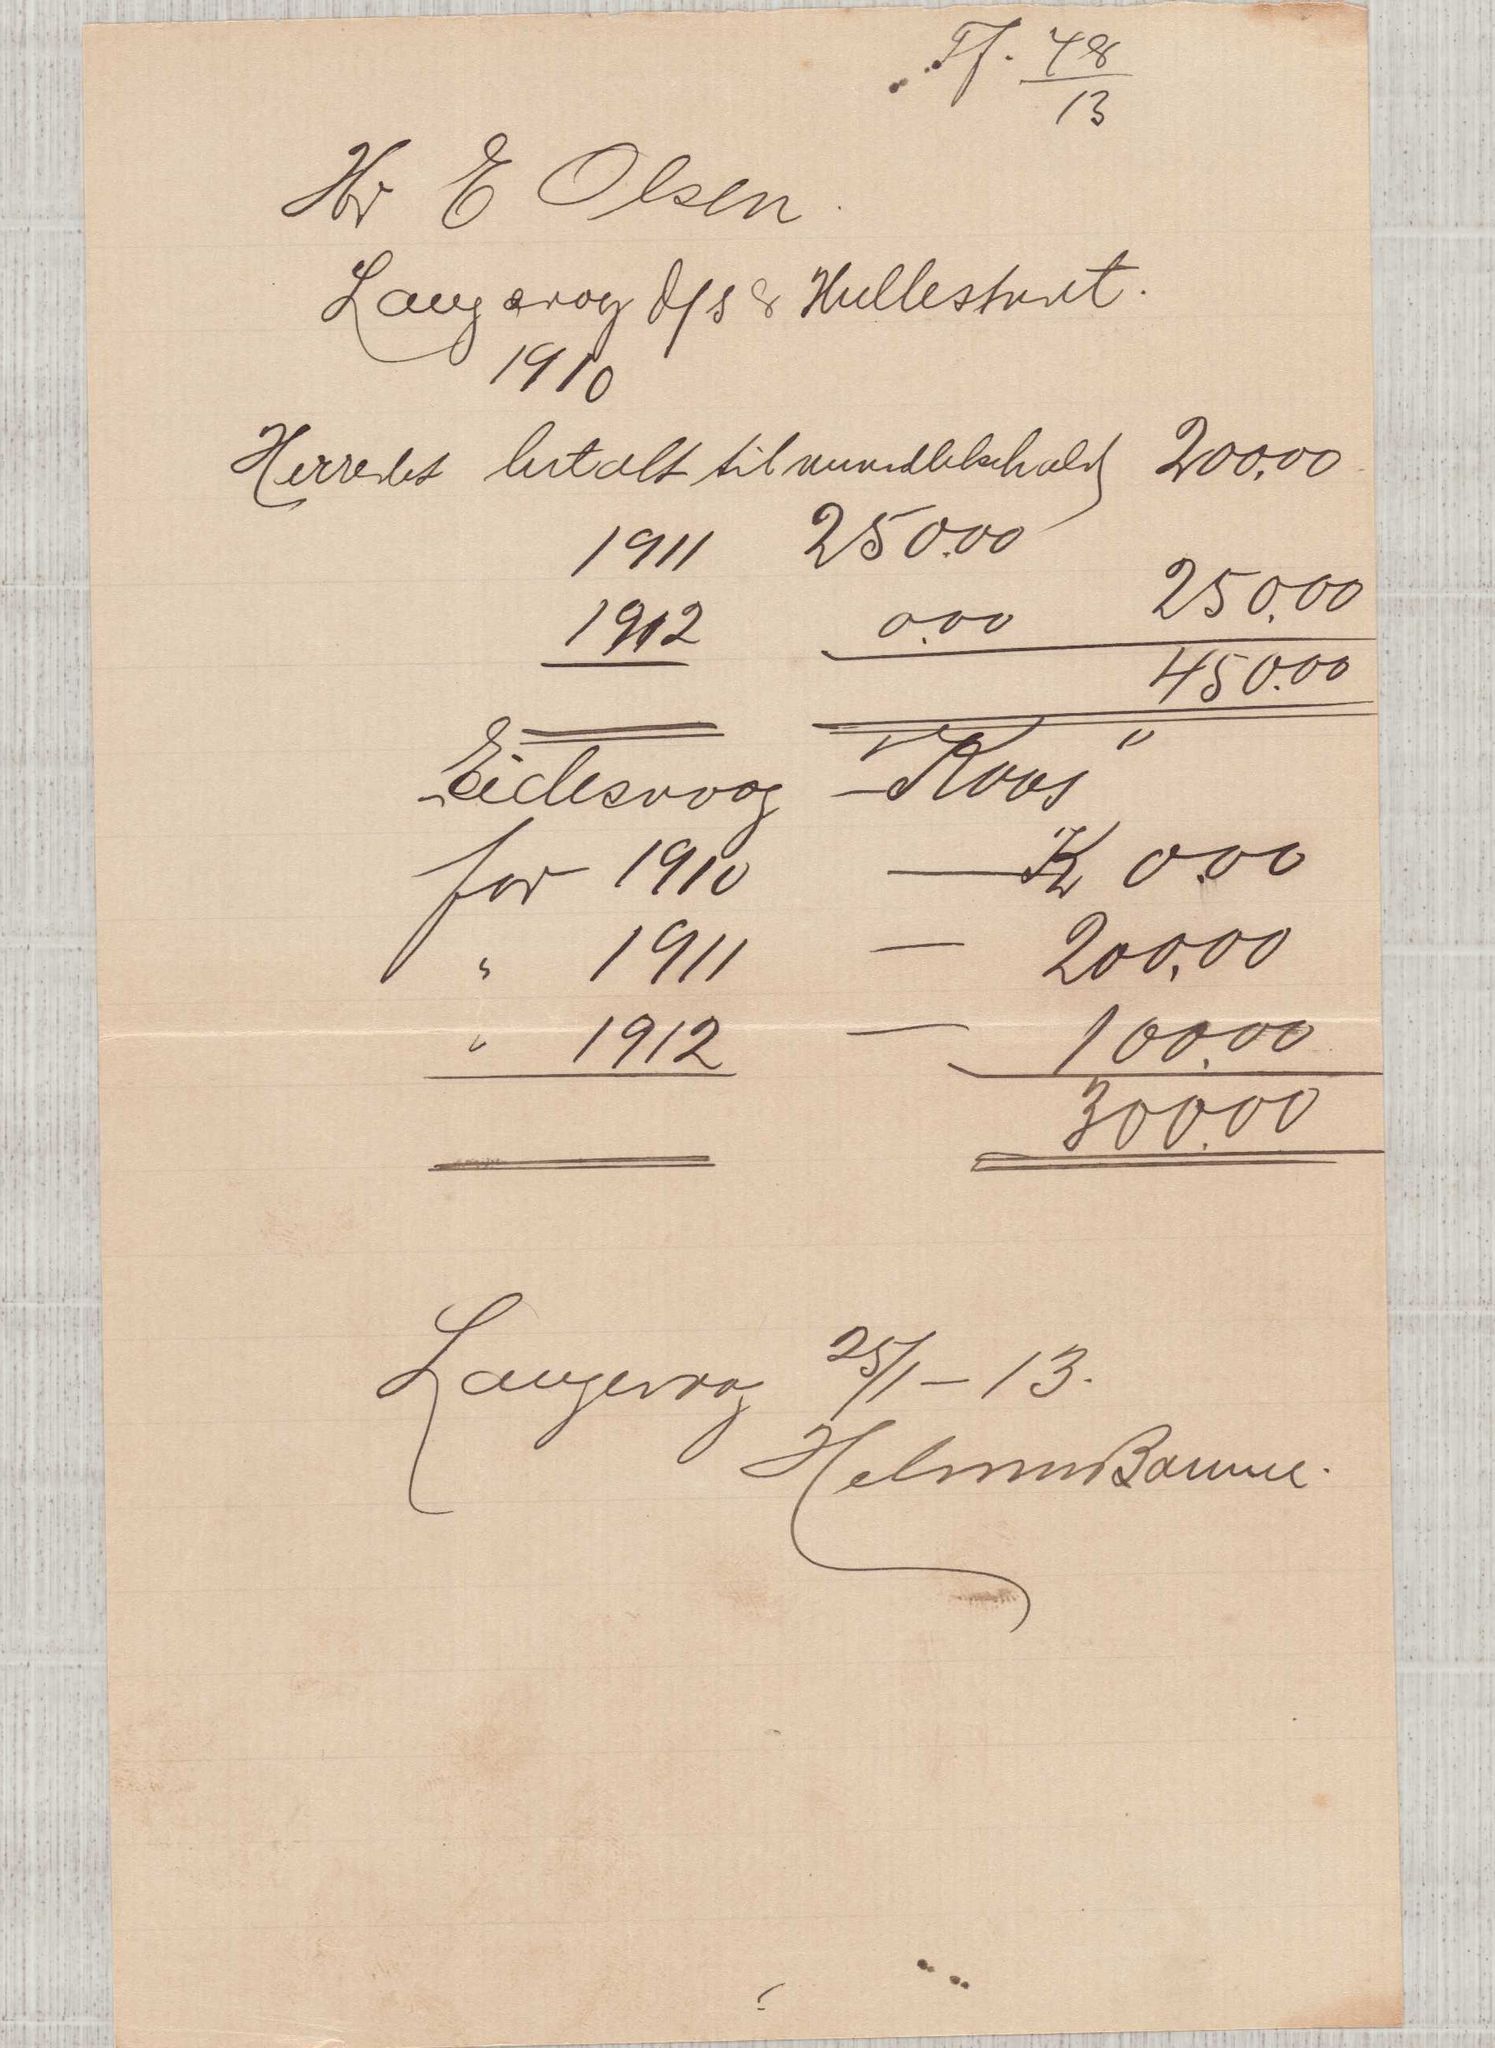 Tf. 48
13
Hr E Olsen.
Langevog D/S & Hullestvet.
1910
Herredet betalt til vedlikehald 200.00
1911 250.00
250.00
1912 0.00
450.00
Eidesvog - "Koos"
for 1910 — Kr 0.00
" 1911 — 200.00
" 1912 — 100.00
300.00
Langevog 25/1 - 13.